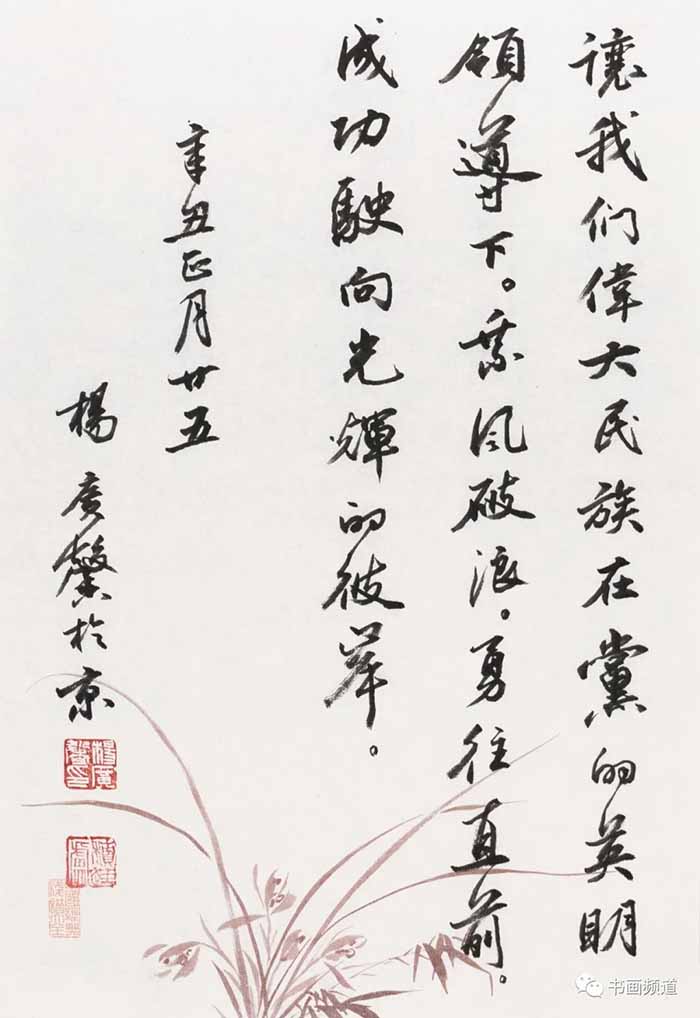 讓我们偉大民族在黨的英明
領導下。乘风破浪。勇往直前。
成功駛向光輝的彼岸。
辛丑正月廿五
楊廣馨於京
楊廣馨印
书画频道